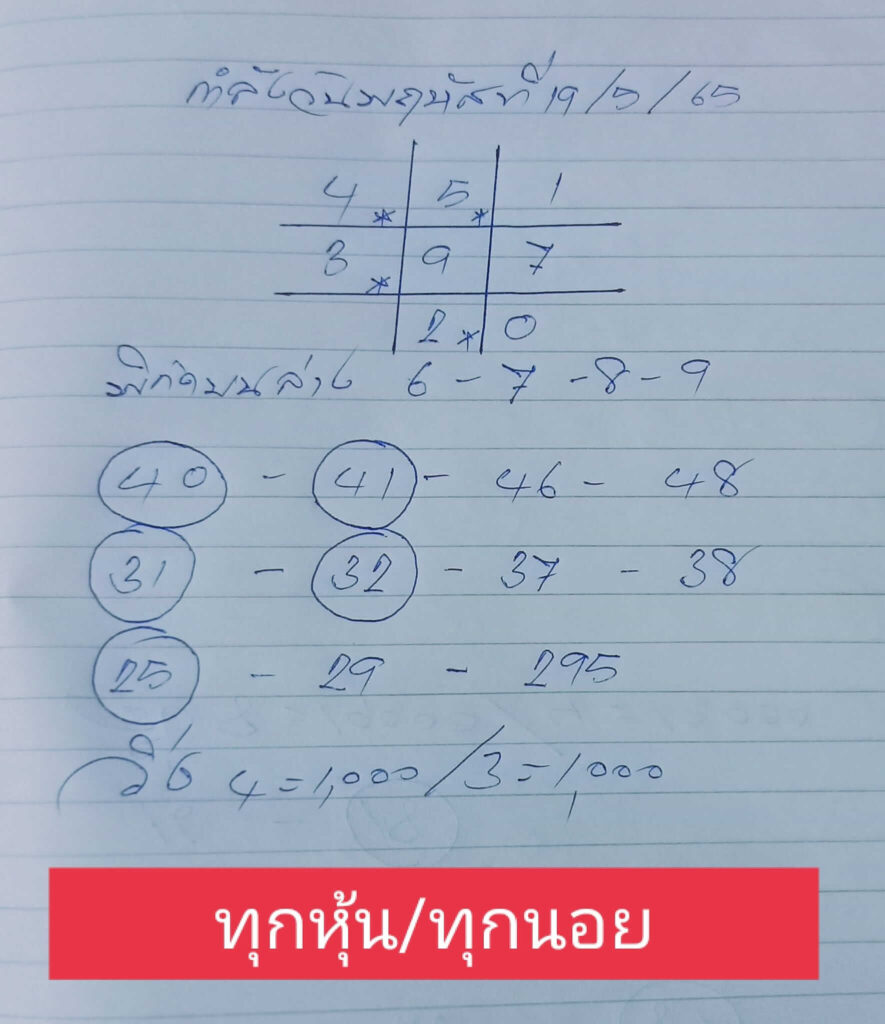 กำลังวันพฤหัสที่ 19/5/65
4* 5* 1
3* 9 7
2* 0
พิกัดบนล่าง 6 - 7 - 8 - 9
40 - 41 - 46 - 48
31 - 32 - 37 - 38
25 - 29 - 295
วิ่ง 4 = 1,000 / 3 = 1,000
ทุกหุ้น/ทุกนอย